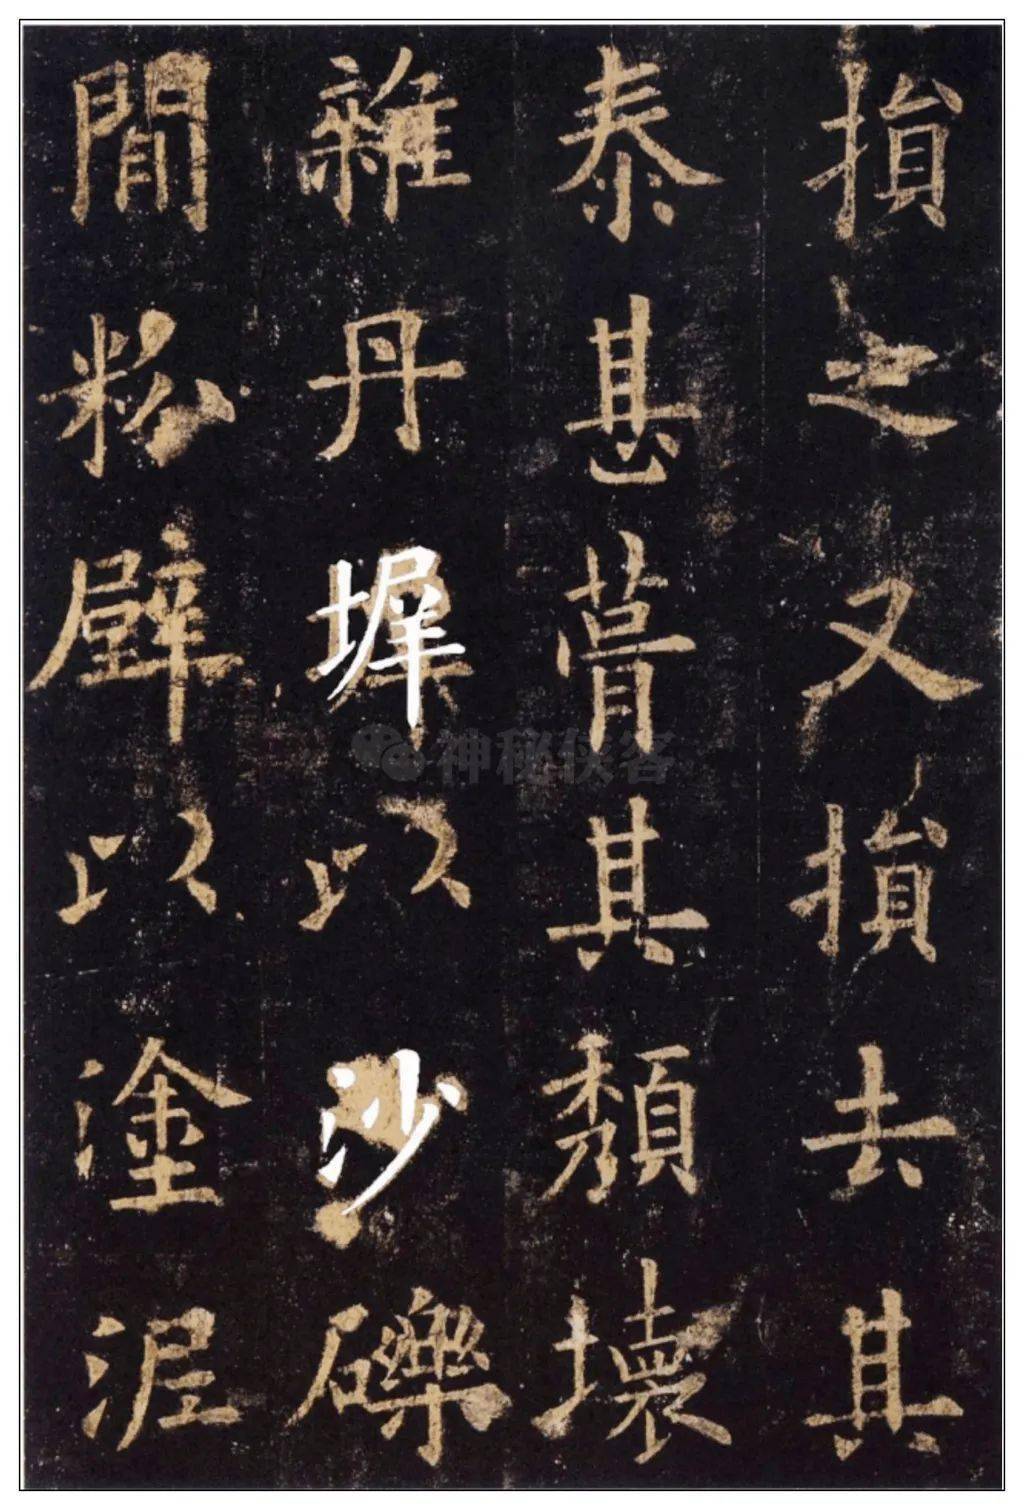 損之又損去其
泰甚葺其頹壞
雜丹墀以沙礫
間粉壁以塗泥
神秘侠客